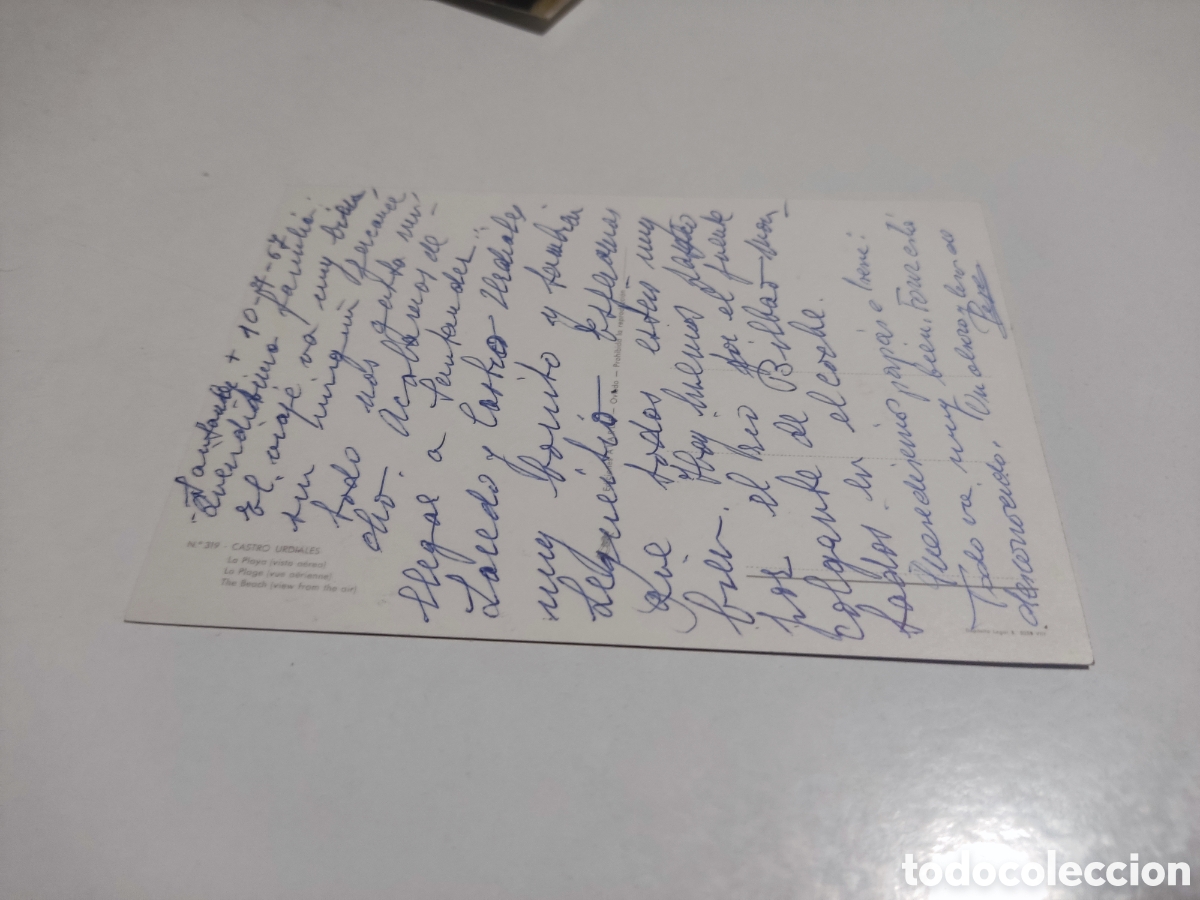 Nº 319 - CASTRO URDIALES
La Playa (vista aérea)
La Plage (vue aérienne)
The Beach (view from the air)
Santander 10-67
Queridísima familia:
El viaje va muy bien
sin ningún percance,
todo nos gusta mu-
cho. Acabamos de
llegar a Santander
Laredo y Castro Urdiales
muy bonito y también
Lequeitio. Esperamos
que todos esteis muy
bien. Hoy hemos pasado
por el Rio por el puente
colgante de Bilbao mon-
tados en el coche.
Queridísimos papás e Irene:
Todo va muy bien.
desconocido. Un abrazo
Oviedo — Prohibida la reproducción
todocoleccion